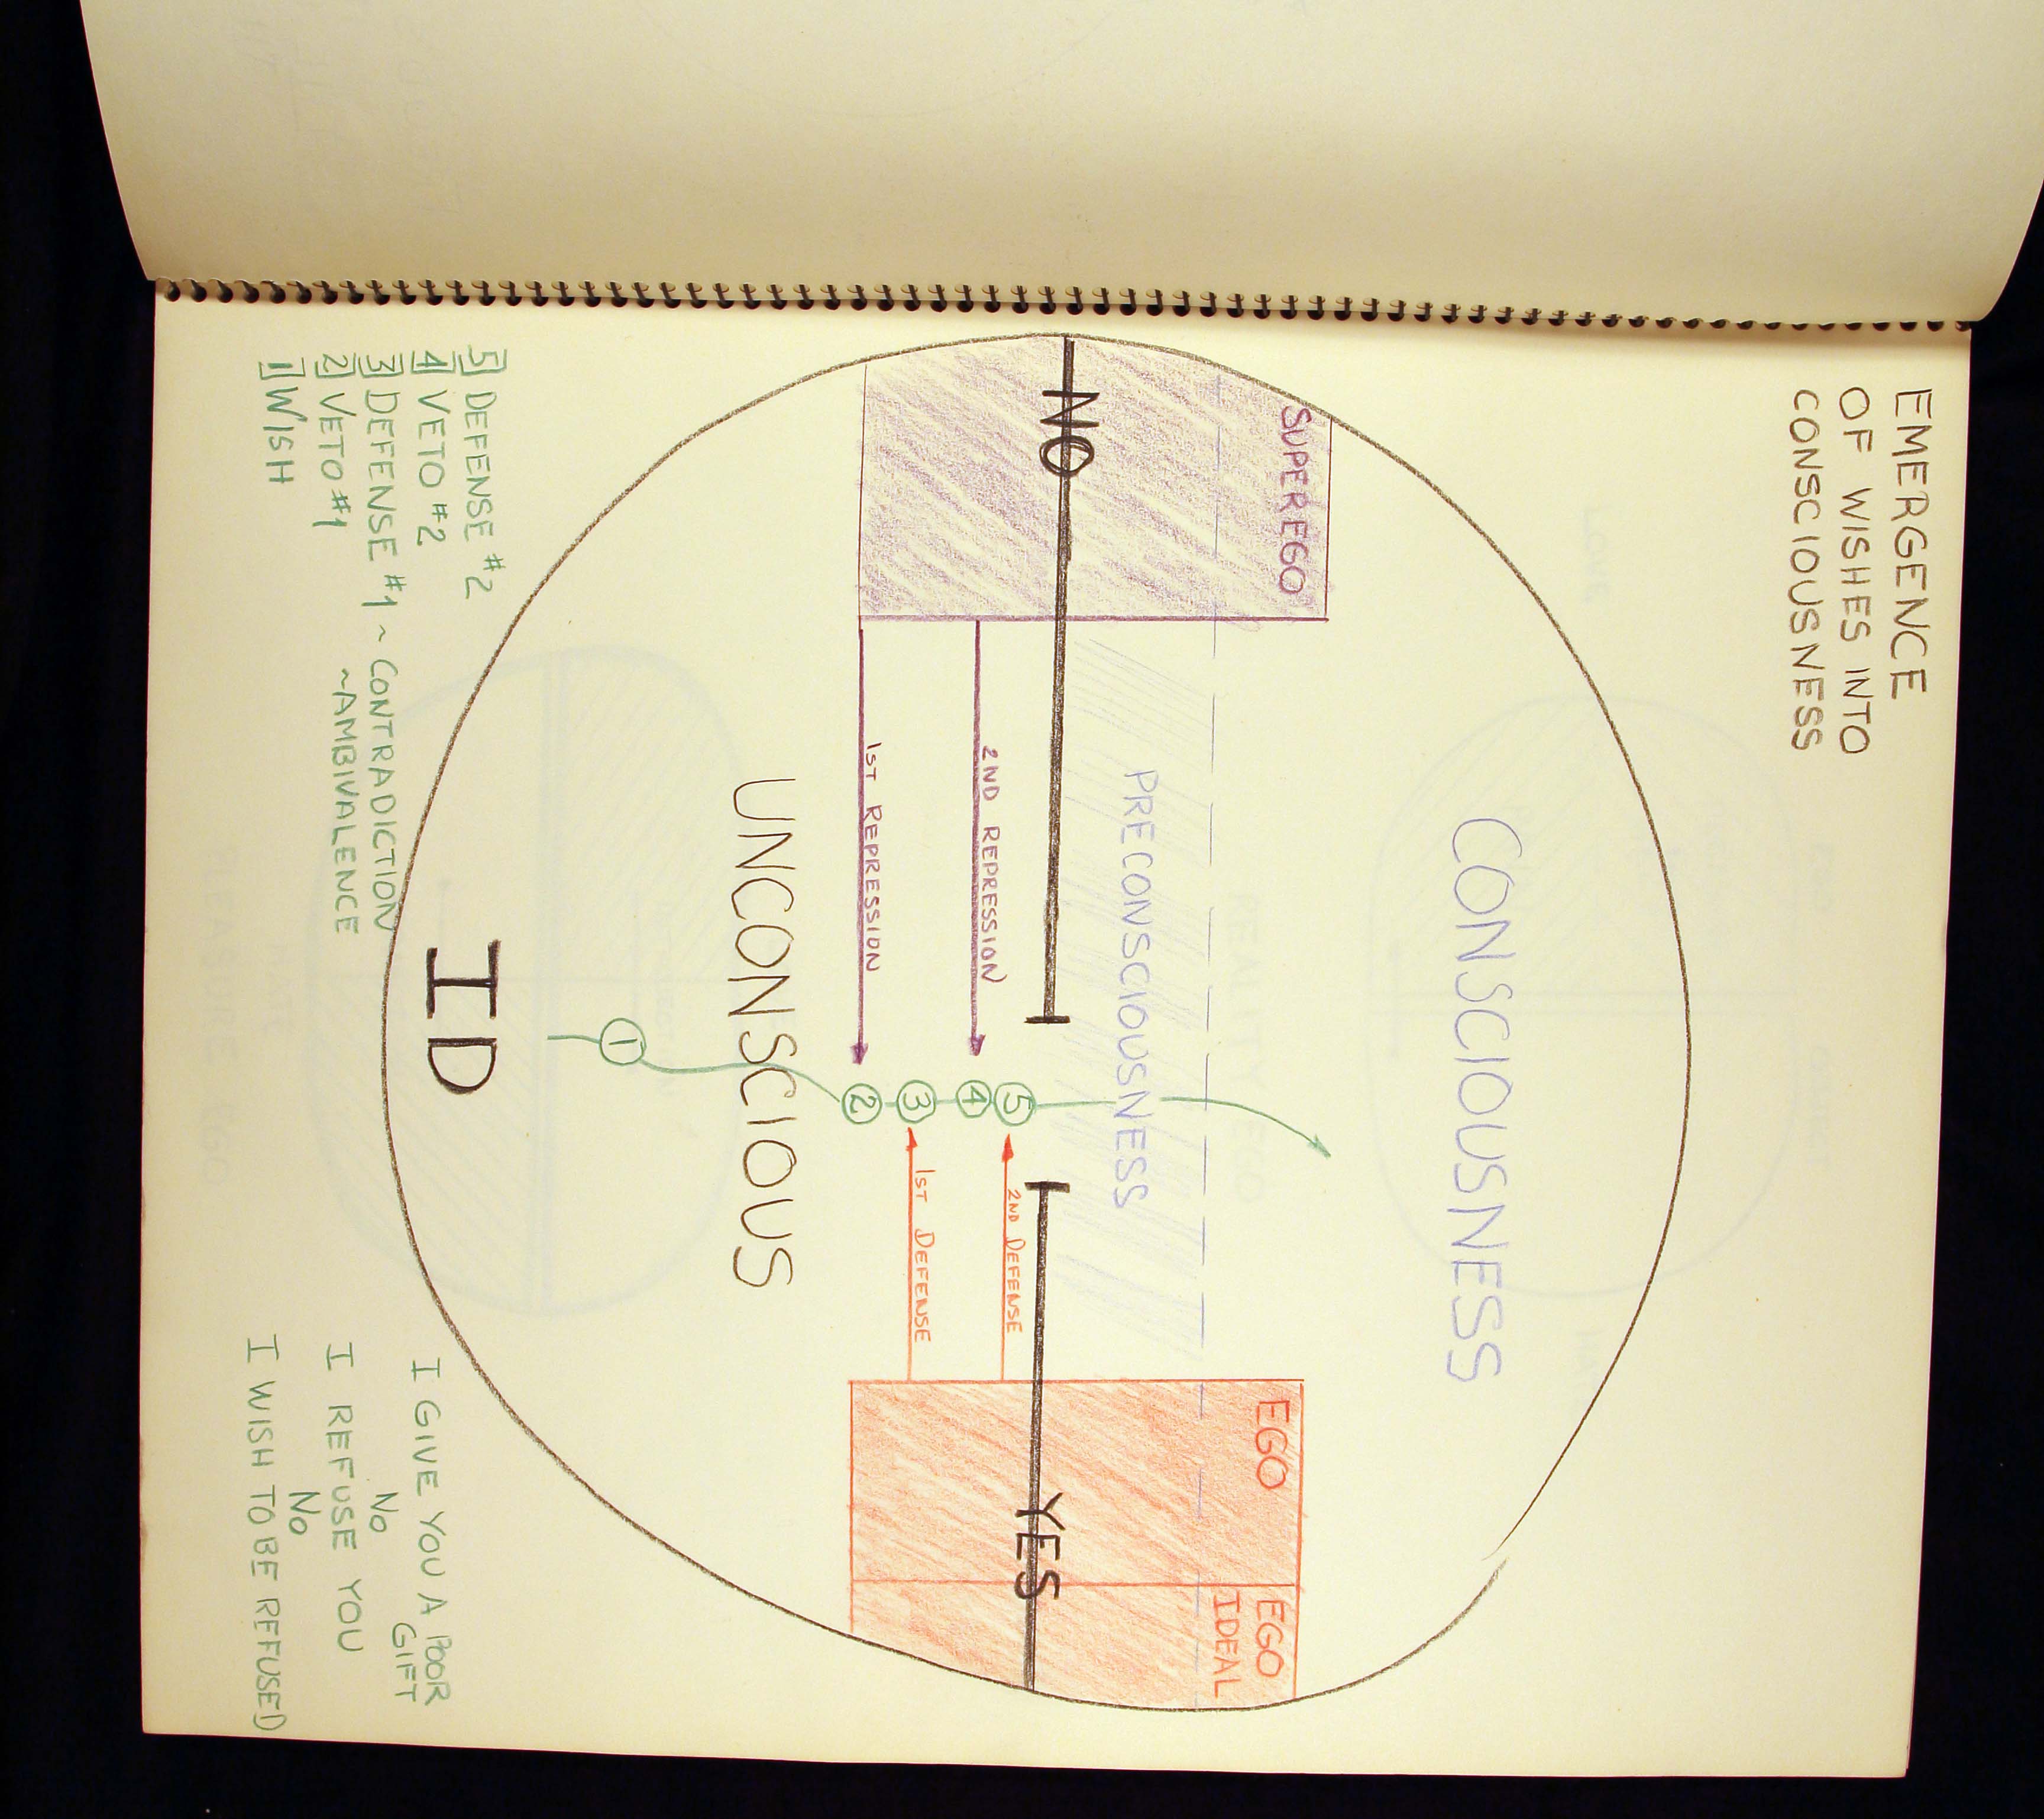 EMERGENCE
OF WISHES INTO
CONSCIOUSNESS
CONSCIOUSNESS
SUPEREGO
EGO
EGO
IDEAL
PRECONSCIOUSNESS
NO
YES
5
2ND REPRESSION
4
2ND DEFENSE
3
1ST REPRESSION
2
1ST DEFENSE
UNCONSCIOUS
1
ID
5 DEFENSE #2
4 VETO #2
3 DEFENSE #1 ~ CONTRADICTION
~AMBIVALENCE
2 VETO #1
1 WISH
I GIVE YOU A POOR
GIFT
NO
I REFUSE YOU
NO
I WISH TO BE REFUSED